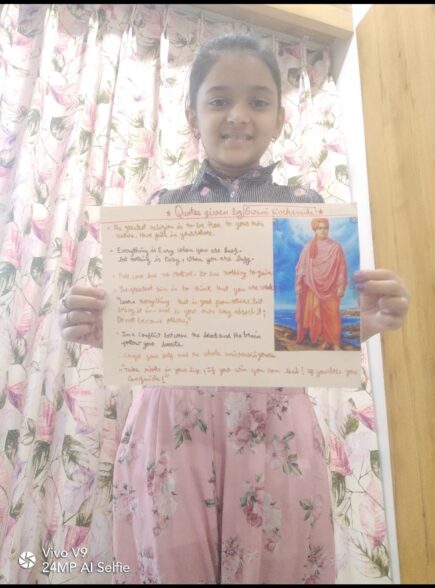 * Quotes given by (Swami Vivekananda) *
- The greatest religion is to be true to your own
nature. Have faith in yourselves.
- Everything is Easy when you are busy.
but nothing is Easy, when you are lazy.
- has no motive. It has nothing to gain.
- The greatest sin is to think that you are weak
"Learn everything that is good from others but
bring it in and in your own way absorb it;
Do not become others."
- In a conflict between the heart and the brain
follow your heart.
your and the whole
"Take risks in your life, If you win you can lead! If you lose you
can guide!"
Vivo V9
24MP AI Selfie